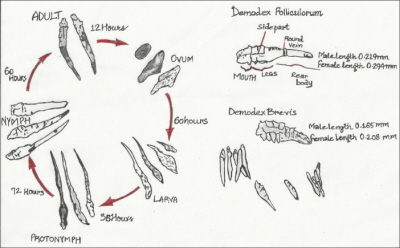 ADULT
12 Hours
OVUM
60 hours
LARVA
38 Hours
PROTONYMPH
72 Hours
NYMPH
60
Hours
Demodex Folliculorum
Side part
Round
vein
MOUTH
Legs
Rear
body
Male length 0.219 mm
Female length 0.294 mm
Demodex Brevis
Male length 0.165 mm
Female length 0.208 mm